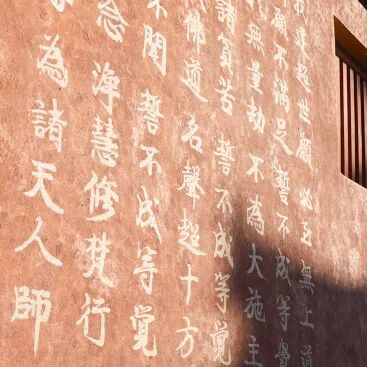 建超世願必至無上道
願不滿足誓不成等覺
無量劫不為大施主
諸貧苦誓不成等覺
佛道名聲超十方
不聞誓不成等覺
念淨慧修梵行
為諸天人師